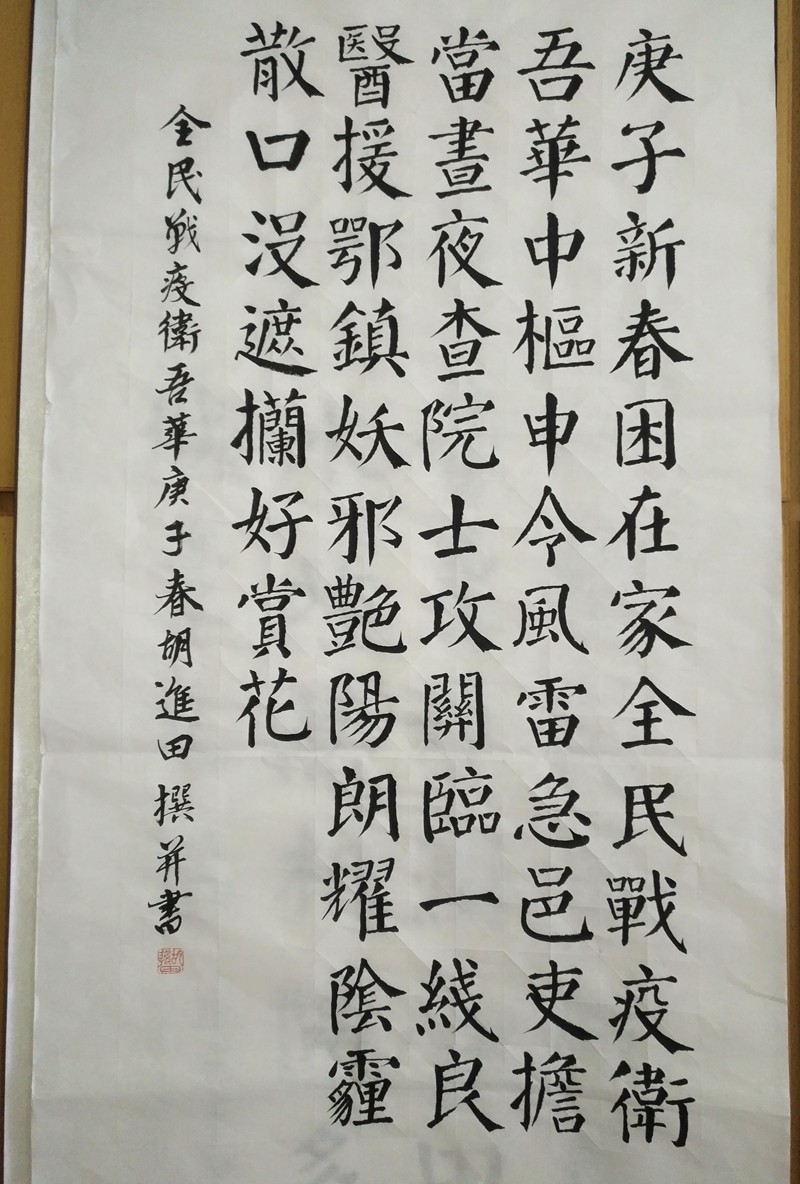 庚子新春困在家全民戰疫衛
吾華中樞申令風雷急邑吏擔
當晝夜查院士攻關臨一綫良
醫援鄂鎮妖邪艷陽朗耀陰霾
散口没遮攔好賞花
全民戰疫衛吾華庚子春胡進田撰并書